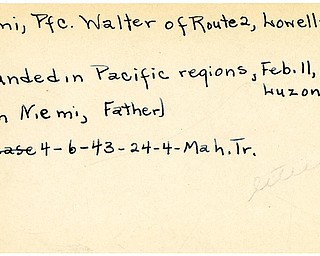 mi, Pfc. Walter of Route 2, Lowell
unded in Pacific regions, Feb. 11,
Luzon
n Niemi, Father)
ase 4-6-43-24-4-Mah. Tr.